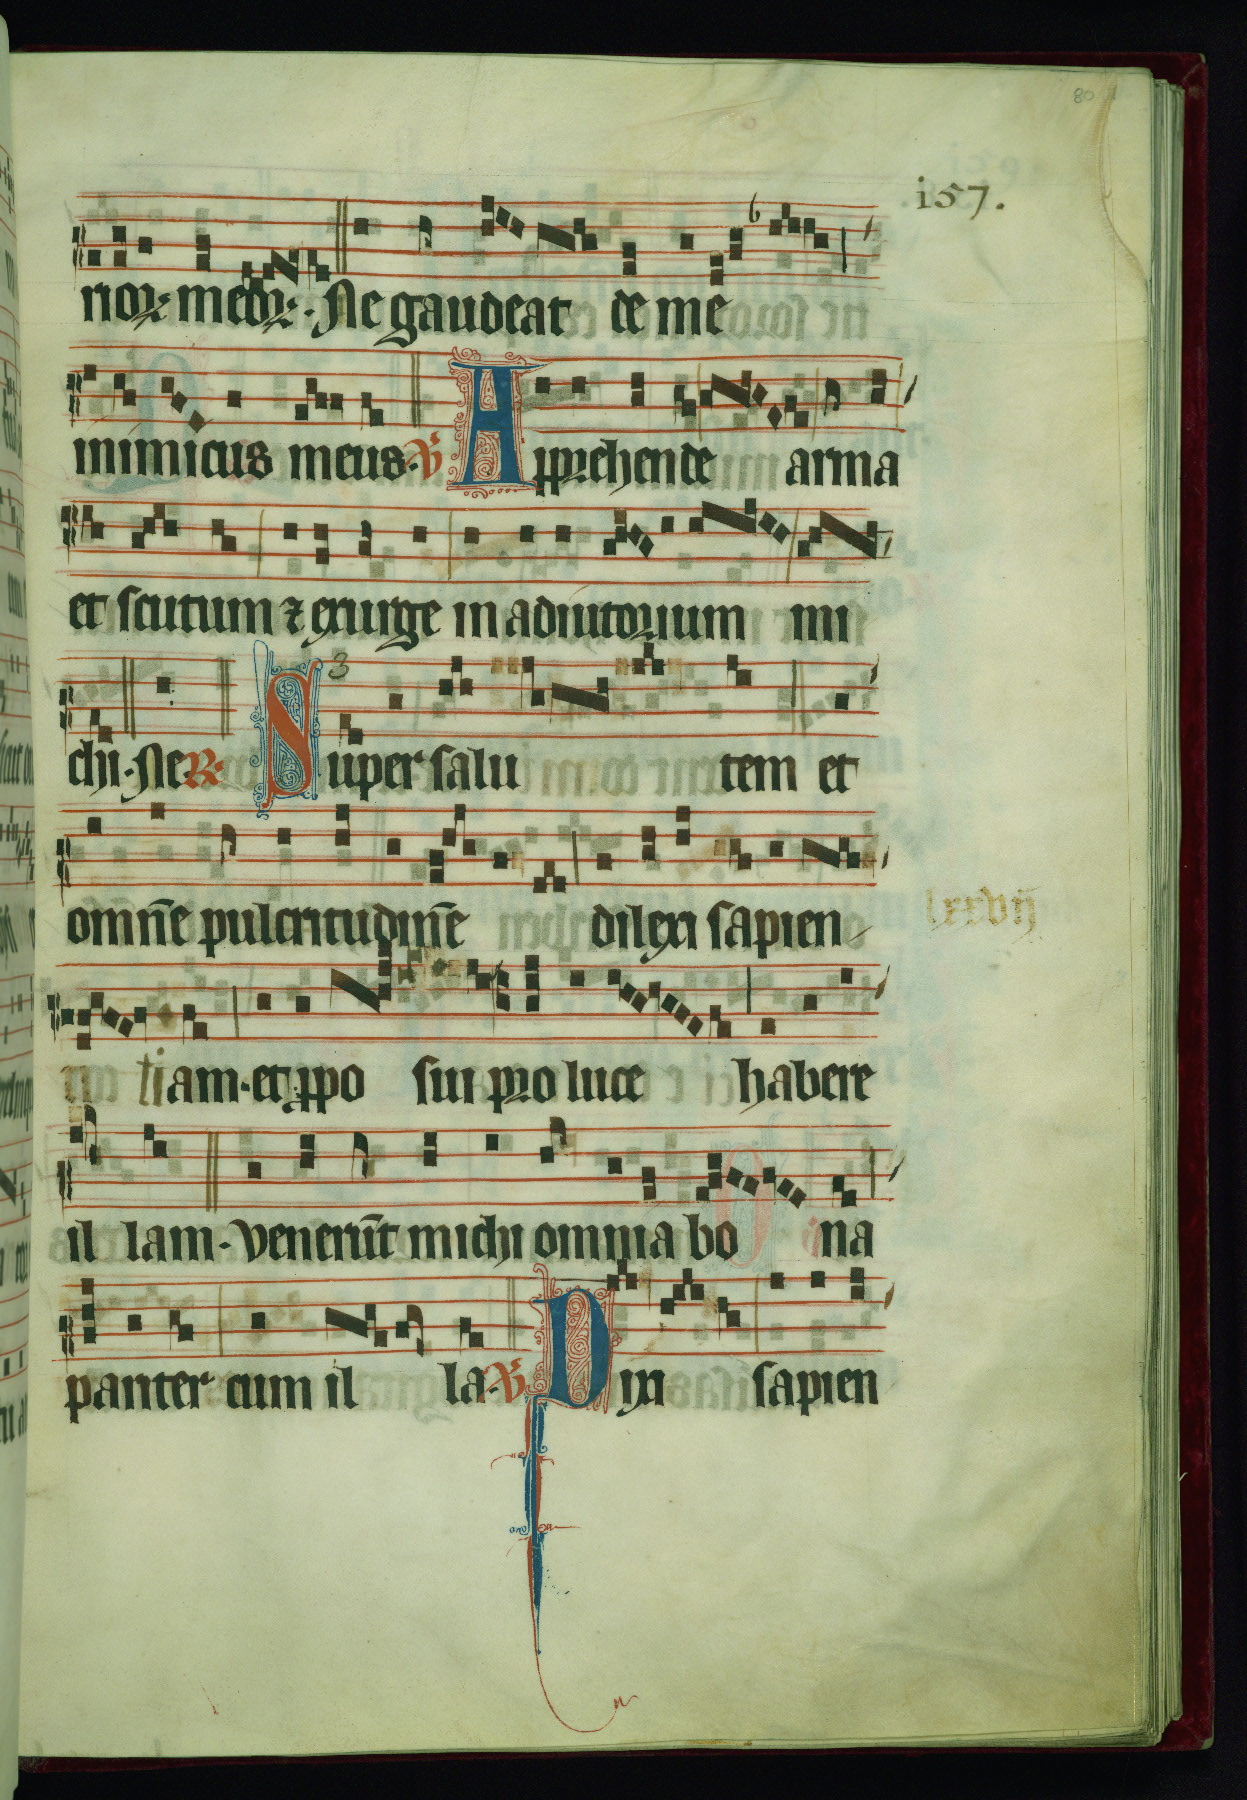 80
i57.
rioꝝ meoꝝ. Ne gaudeat de me
inimicus meus. ℣
Apprehende arma
et scutum ⁊ exurge in adiutorium mi
chi. Ne. ℟ Super salu tem et
3
omn̄e pulcritudin̄e dilexi sapien
lxxvij
tiam. et ꝓpo sui pro luce habere
il lam. Venerūt michi omnia bo na
pariter cum il la. ℣ Dixi sapien